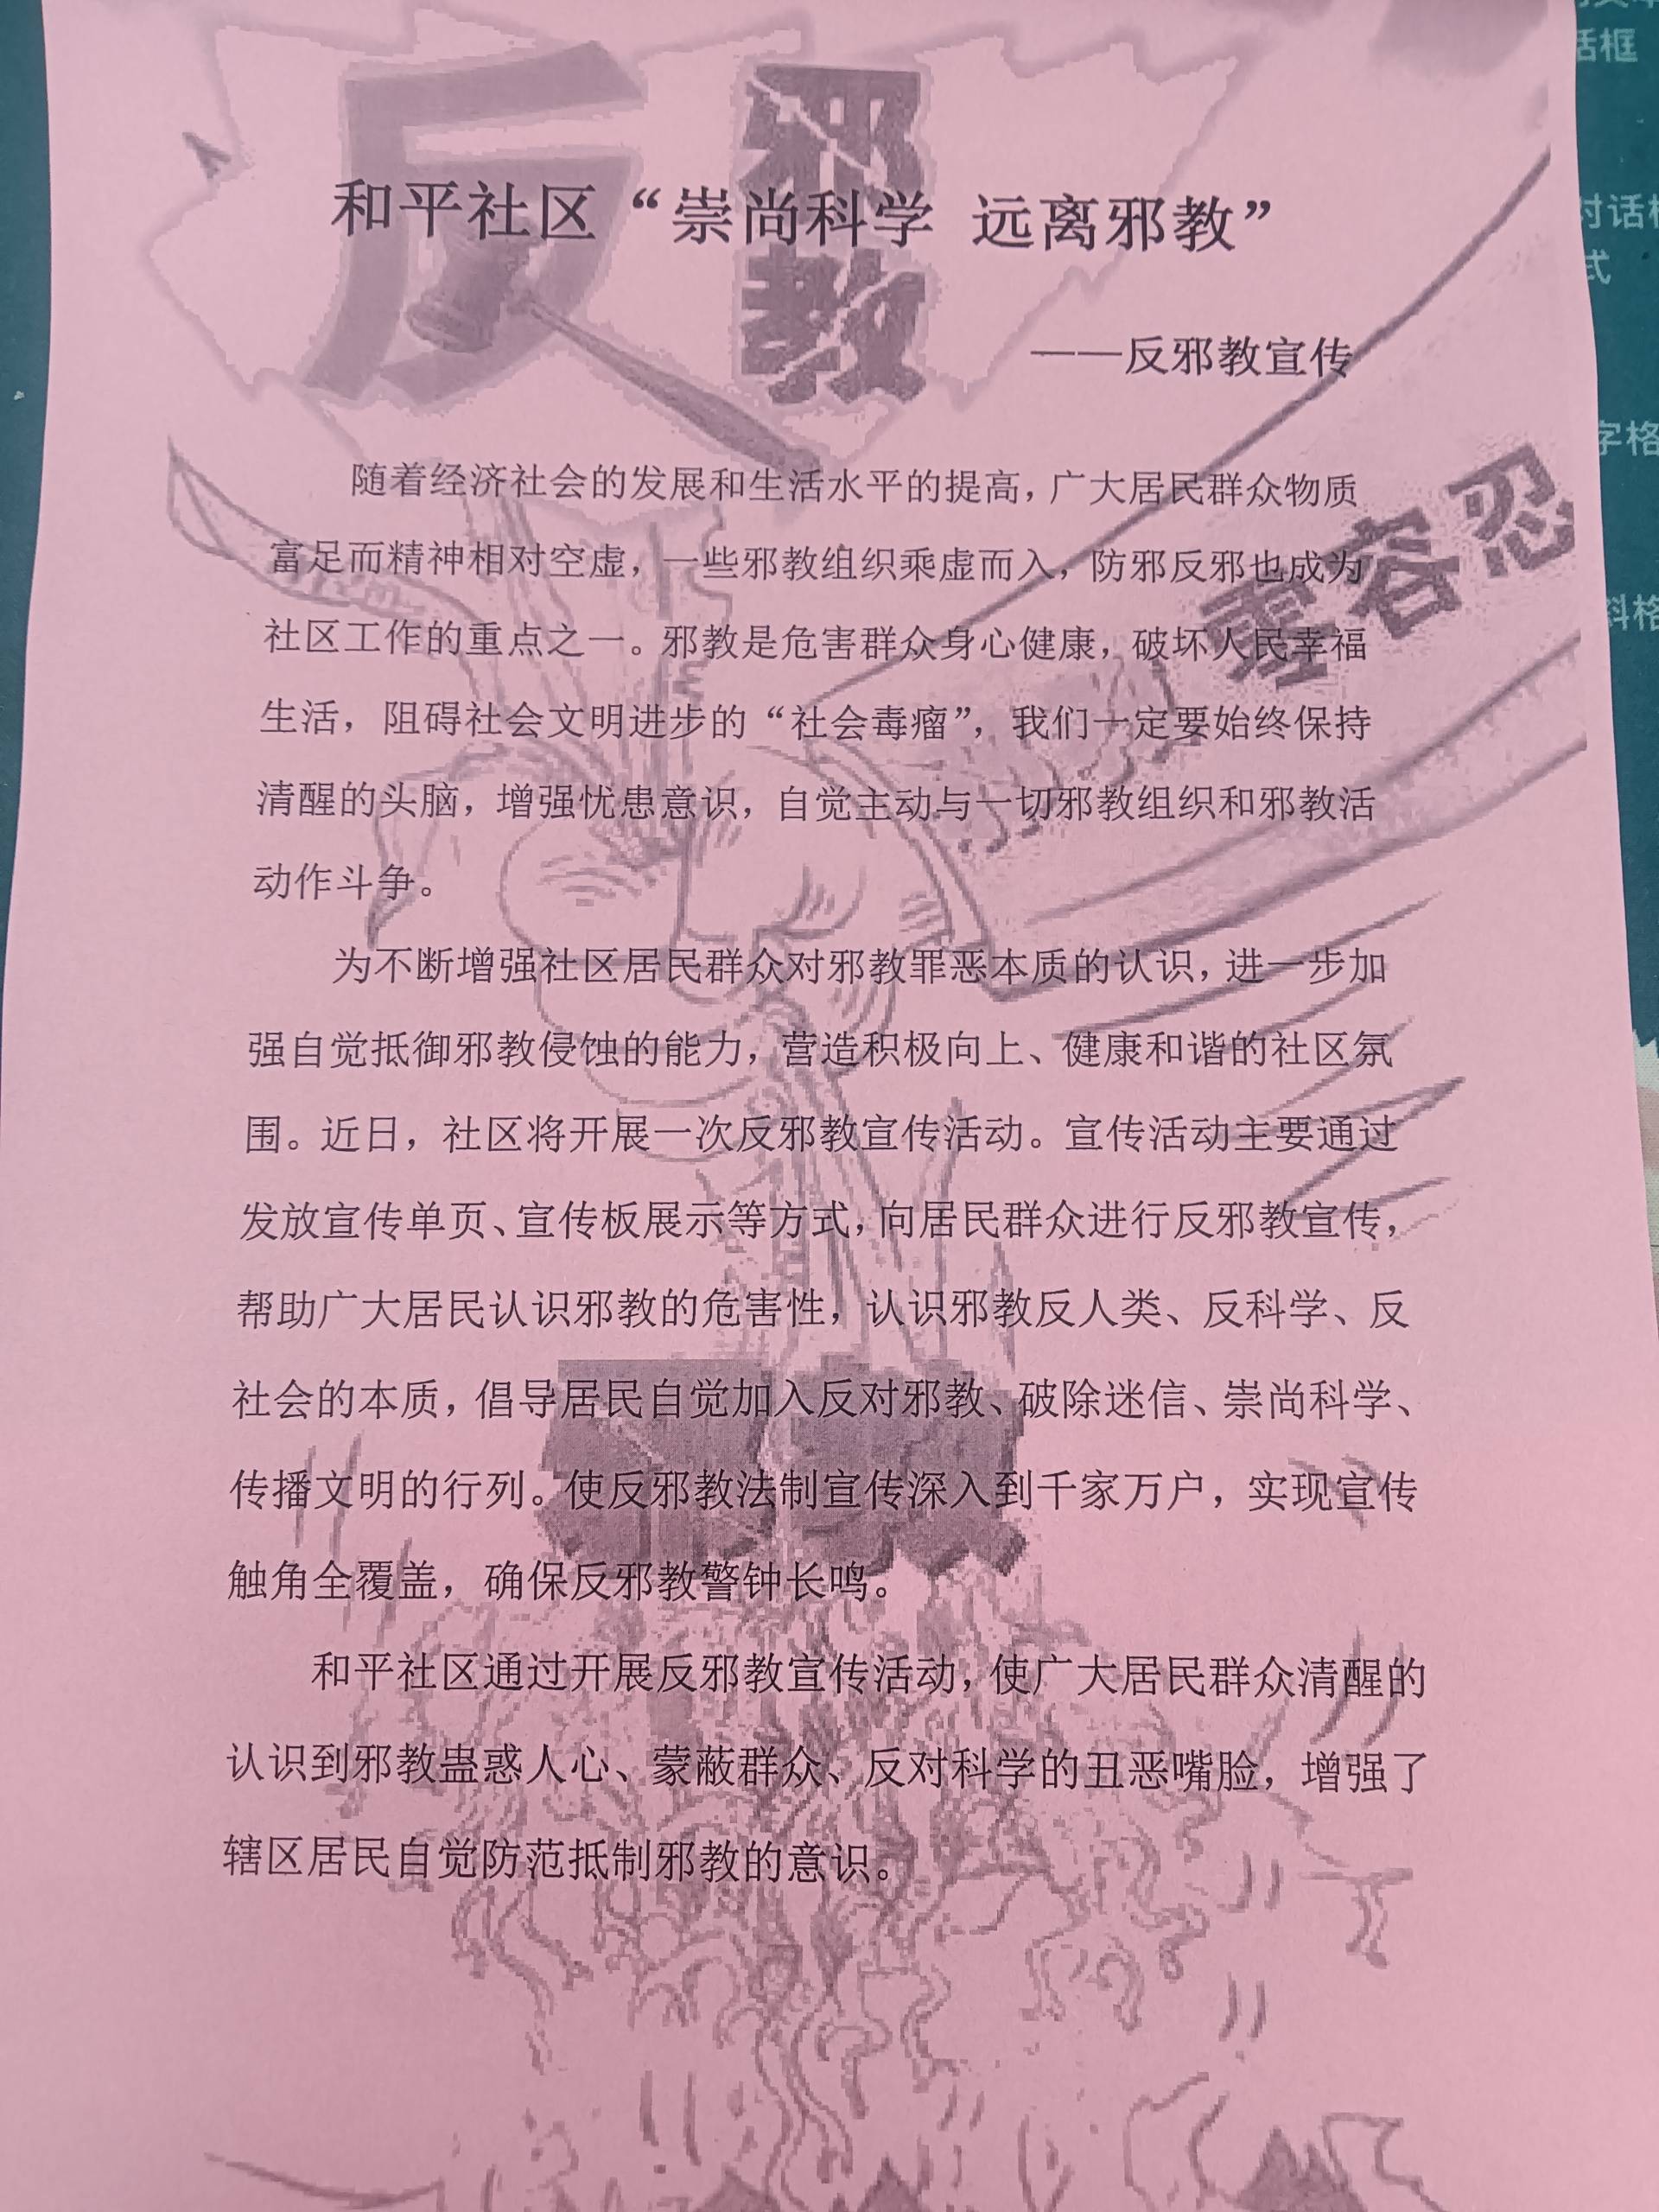 反
邪
教
和平社区“崇尚科学 远离邪教”
——反邪教宣传
随着经济社会的发展和生活水平的提高，广大居民群众物质
富足而精神相对空虚，一些邪教组织乘虚而入，防邪反邪也成为
社区工作的重点之一。邪教是危害群众身心健康，破坏人民幸福
生活，阻碍社会文明进步的“社会毒瘤”，我们一定要始终保持
清醒的头脑，增强忧患意识，自觉主动与一切邪教组织和邪教活
动作斗争。
为不断增强社区居民群众对邪教罪恶本质的认识，进一步加
强自觉抵御邪教侵蚀的能力，营造积极向上、健康和谐的社区氛
围。近日，社区将开展一次反邪教宣传活动。宣传活动主要通过
发放宣传单页、宣传板展示等方式，向居民群众进行反邪教宣传，
帮助广大居民认识邪教的危害性，认识邪教反人类、反科学、反
社会的本质，倡导居民自觉加入反对邪教、破除迷信、崇尚科学、
传播文明的行列。使反邪教法制宣传深入到千家万户，实现宣传
触角全覆盖，确保反邪教警钟长鸣。
和平社区通过开展反邪教宣传活动，使广大居民群众清醒的
认识到邪教蛊惑人心、蒙蔽群众、反对科学的丑恶嘴脸，增强了
辖区居民自觉防范抵制邪教的意识。
零容忍
邪教
话框
对话
式
字格
斜格